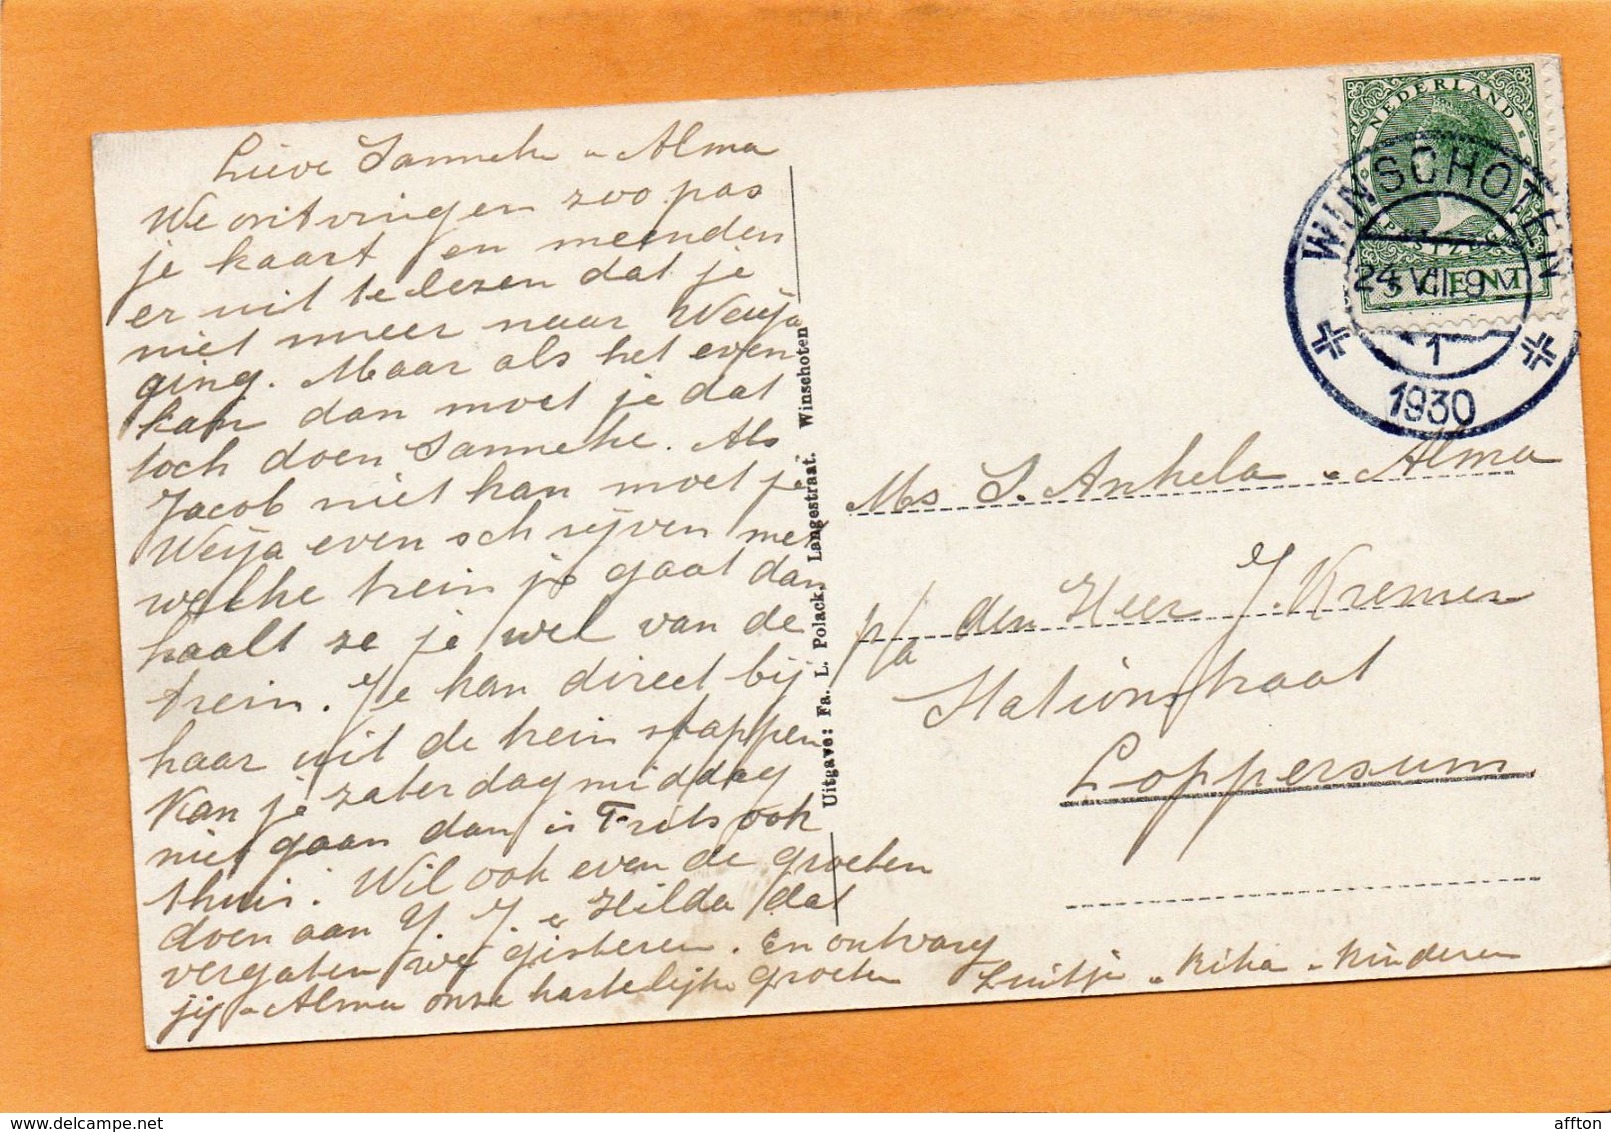 Lieve Sanneke en Alma
We ontvingen zoo pas
je kaart en meenden
er uit te lezen dat je
niet meer naar Weija
ging. Maar als het even
kan dan moet je dat
toch doen Sanneke. Als
Jacob niet kan moet je
Weija even schrijven met
welke trein je gaat dan
haalt ze je wel van de
trein. Je kan direct bij
haar uit de trein stappen
Kan je zaterdagmiddag
niet gaan dan is Frits ook
thuis. Wil ook even de groeten
doen aan J. J. en Hilda dat
vergaten we gisteren. En ontvang
jij en Alma onze hartelijke groeten Luitje en Rika en Kinderen
Uitgave: Fa. L. Polack, Langestraat. Winschoten
NEDERLAND
POSTZEGEL
5 CENT
WINSCHOTEN
24 VII 9
1
1930
Ms S. Ankela en Alma
p/a den Heer J. Kremer
Stationstraat
Loppersum
affton